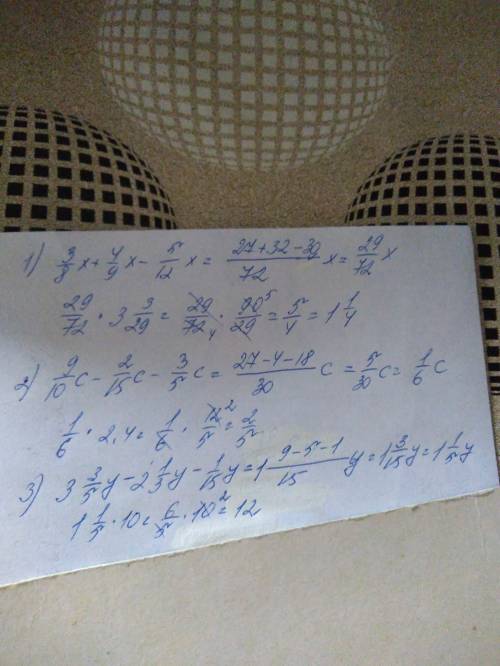 1) 3/8 x + 4/9 x - 5/12 x = (27+32-30)/72 x = 29/72 x
29/72 · 3 3/29 = 29/72 4 · 90 5/29 = 5/4 = 1 1/4
2) 9/10 c - 2/15 c - 3/5 c = (27-4-18)/30 c = 5/30 c = 1/6 c
1/6 · 2,4 = 1/6 · 12 2/5 = 2/5
3) 3 3/5 y - 2 1/3 y - 1/15 y = 1 (9-5-1)/15 y = 1 3/15 y = 1 1/5 y
1 1/5 · 10 = 6/5 · 10 2 = 12